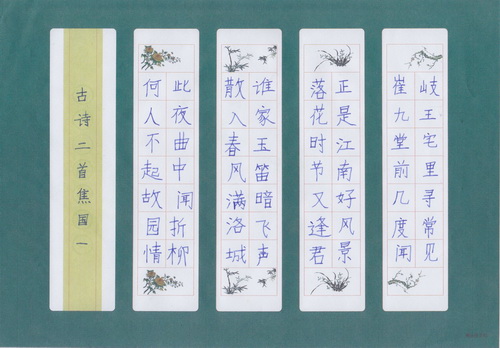 岐王宅里寻常见
崔九堂前几度闻
正是江南好风景
落花时节又逢君
谁家玉笛暗飞声
散入春风满洛城
此夜曲中闻折柳
何人不起故园情
古诗二首焦国一